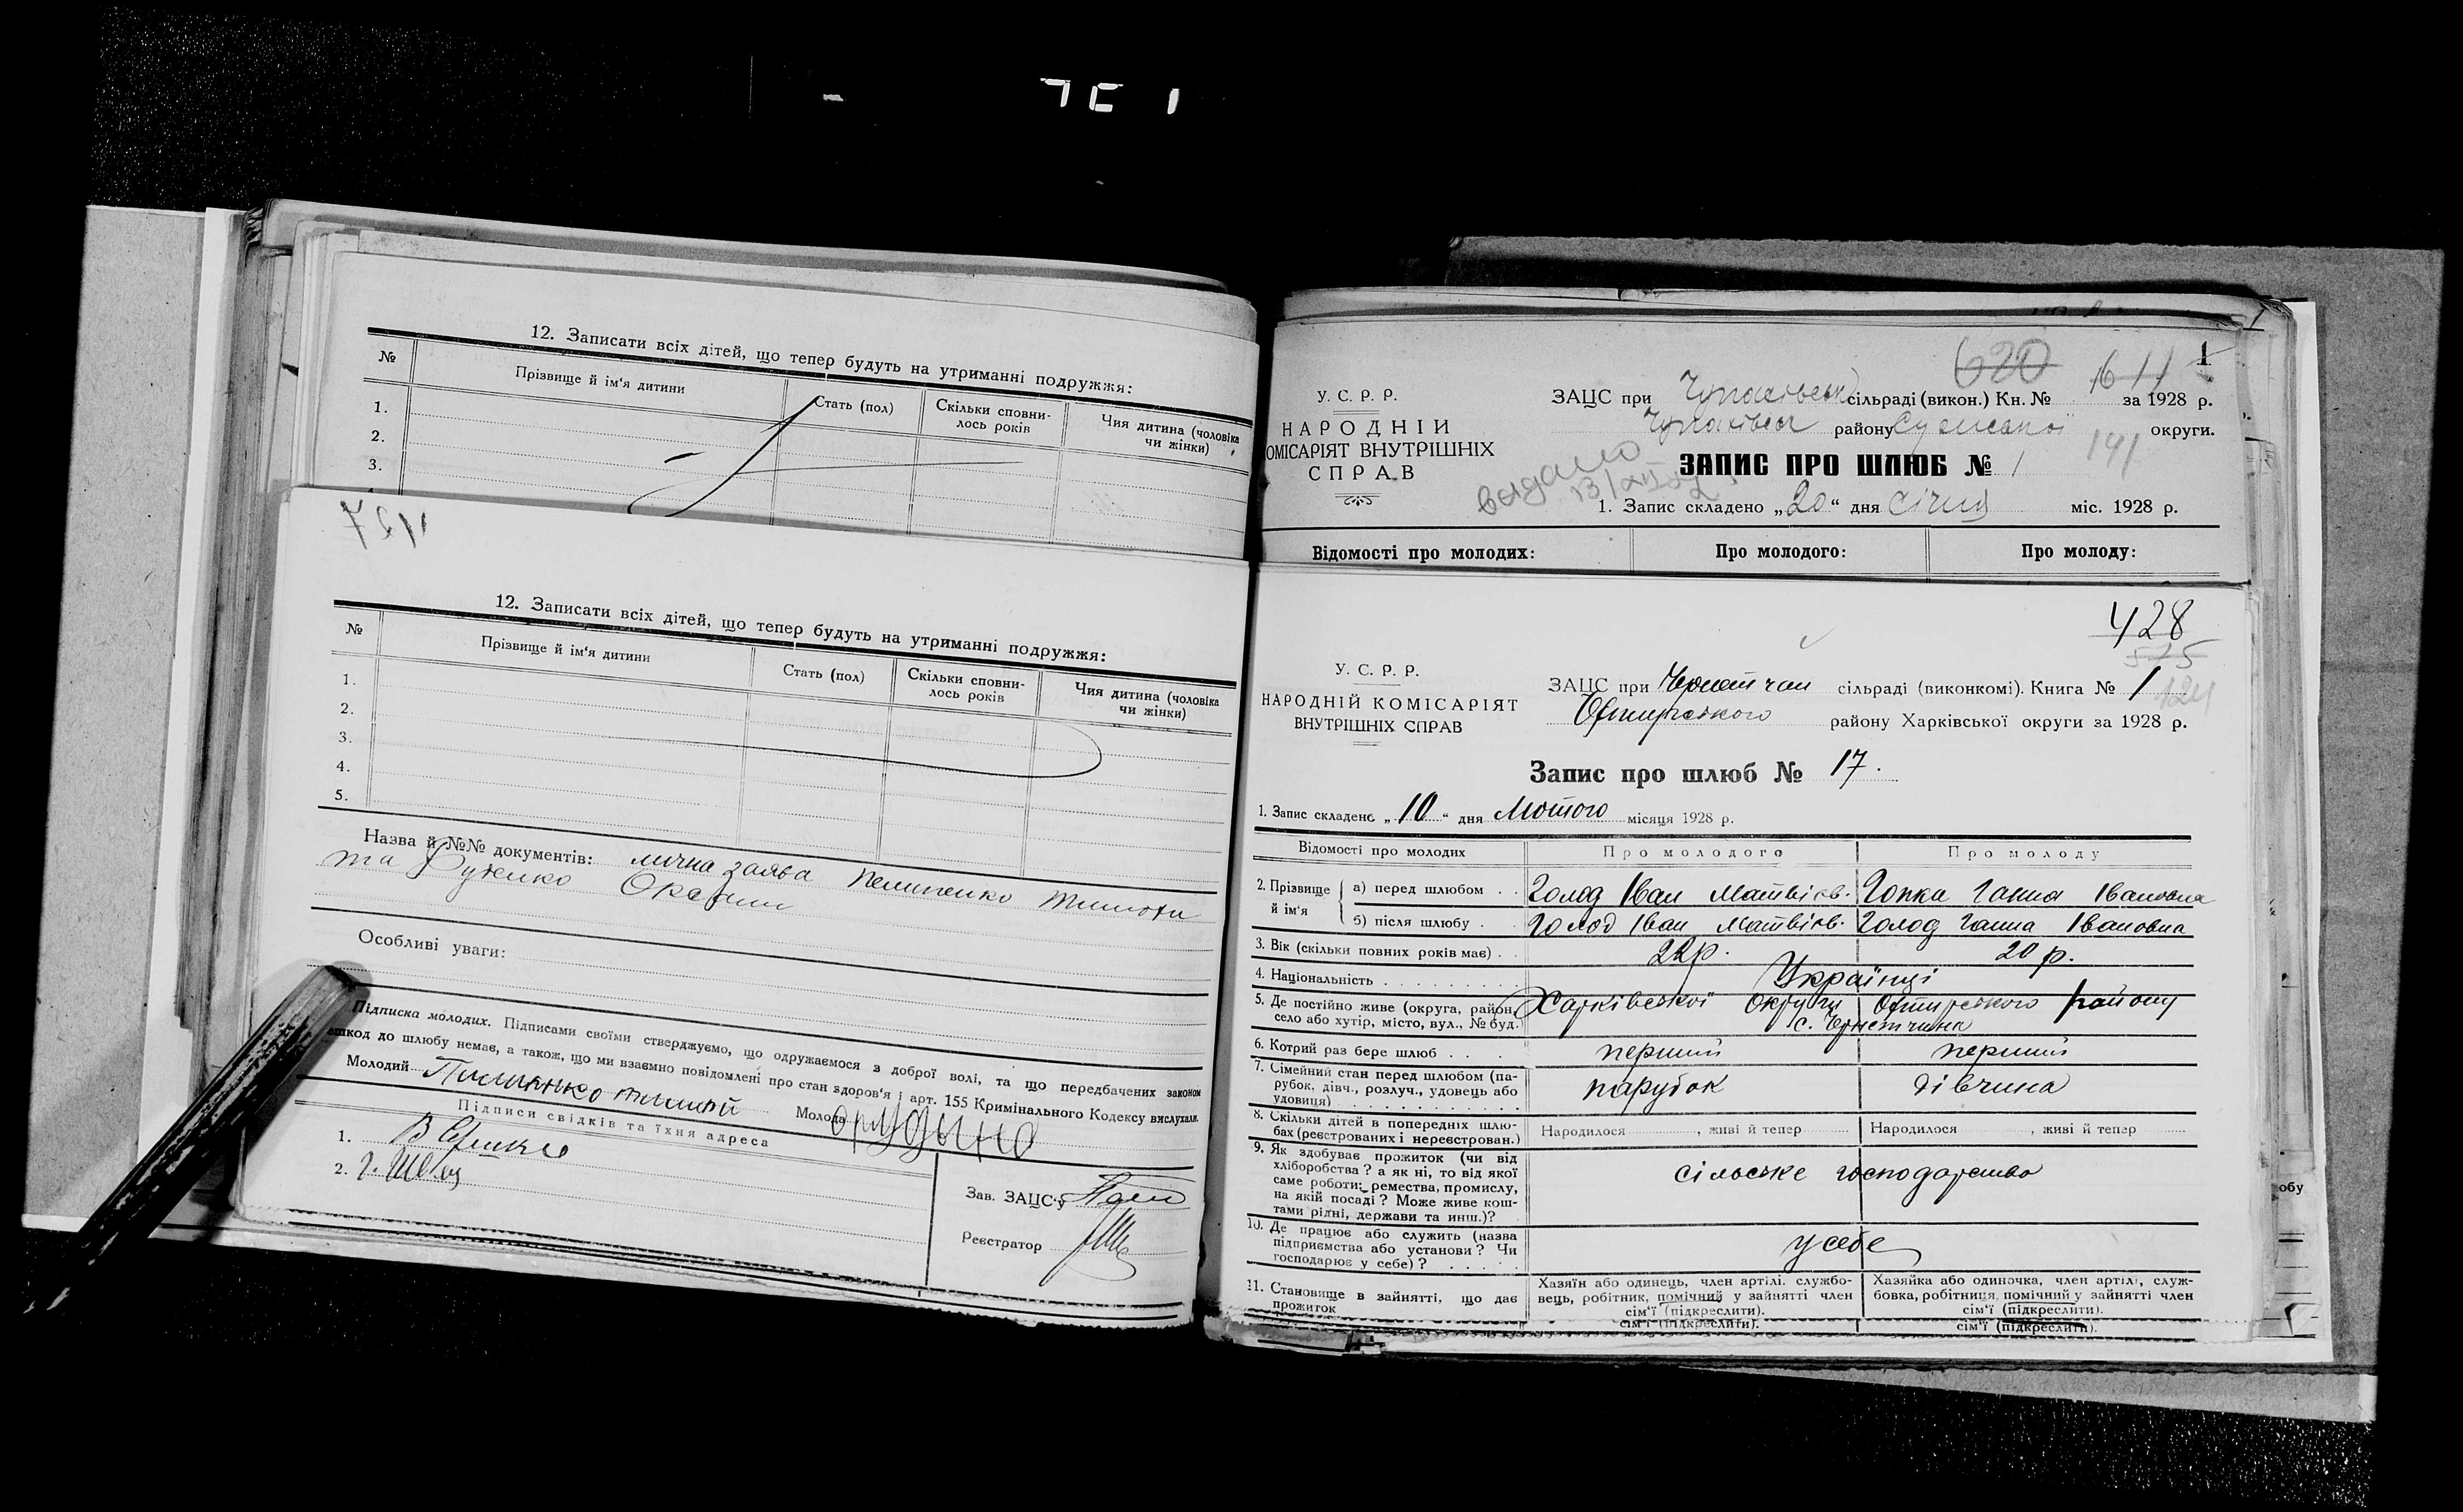 12. Записати всіх дітей, що тепер будуть на утриманні подружжя:
№ Прізвище й ім'я дитини Стать (пол) Скільки сповнилось років Чия дитина (чоловіка чи жінки)
1.
2.
3.
427
12. Записати всіх дітей, що тепер будуть на утриманні подружжя:
№ Прізвище й ім'я дитини Стать (пол) Скільки сповнилось років Чия дитина (чоловіка чи жінки)
1.
2.
3.
4.
5.
Назва й №№ документів: лична заява
та
Особливі уваги:
Підписка молодих. Підписами своїми стверджуємо, що одружаємося з доброї волі, та що передбачених законом
шкод до шлюбу немає, а також, що ми взаємно повідомлені про стан здоров'я і арт. 155 Кримінального Кодексу вислухали.
Молодий Молода
Підписи свідків та їхня адреса
1.
2.
Зав. ЗАЦС'у
Реєстратор
1
620
611
У. С. Р. Р.
НАРОДНІЙ
КОМІСАРІЯТ ВНУТРІШНІХ
СПРАВ
ЗАЦС при сільраді (викон.) Кн. № за 1928 р.
району Сумської округи.
141
видано
ЗАПИС ПРО ШЛЮБ № 1
1. Запис складено „20“ дня січня міс. 1928 р.
Відомості про молодих: Про молодого: Про молоду:
428
575
У. С. Р. Р.
НАРОДНІЙ КОМІСАРІЯТ
ВНУТРІШНІХ СПРАВ
ЗАЦС при сільраді (виконкомі). Книга № 1
району Харківської округи за 1928 р.
Запис про шлюб № 17.
1. Запис складено „10“ дня Лютого місяця 1928 р.
Відомості про молодих Про молодого Про молоду
2. Прізвище й ім'я
а) перед шлюбом . . Голод Іван Матвієв. Гопка Ганна Івановна
б) після шлюбу . Голод Іван Матвієв. Голод Ганна Івановна
3. Вік (скільки повних років має) . . 22 р. 20 р.
4. Національність Українці
5. Де постійно живе (округа, район, Харківської Округи Охтирського району
село або хутір, місто, вул., № буд. с.
6. Котрий раз бере шлюб . . . . перший перший
7. Сімейний стан перед шлюбом (парубок, дівч., розлуч., удовець або
удовиця) парубок дівчина
8. Скільки дітей в попередніх шлюбах (реєстрованих і нереєстрован.) Народилося , живі й тепер Народилося , живі й тепер
9. Як здобуває прожиток (чи від
хліборобства ? а як ні, то від якої
саме роботи: ремества, промислу,
на якій посаді ? Може живе коштами рідні, держави та инш.)? сільське господарство
10. Де працює або служить (назва
підприємства або установи ? Чи
господарює у себе) ? у себе
11. Становище в зайнятті, що дає
прожиток
Хазяїн або одинець, член артілі. службовець, робітник, помічний у зайнятті член
сім'ї (підкреслити).
Хазяйка або одиночка, член артілі, службовка, робітниця, помічний у зайнятті член
сім'ї (підкреслити).
сім'ї (підкреслити). сім'ї (підкреслити).
обу